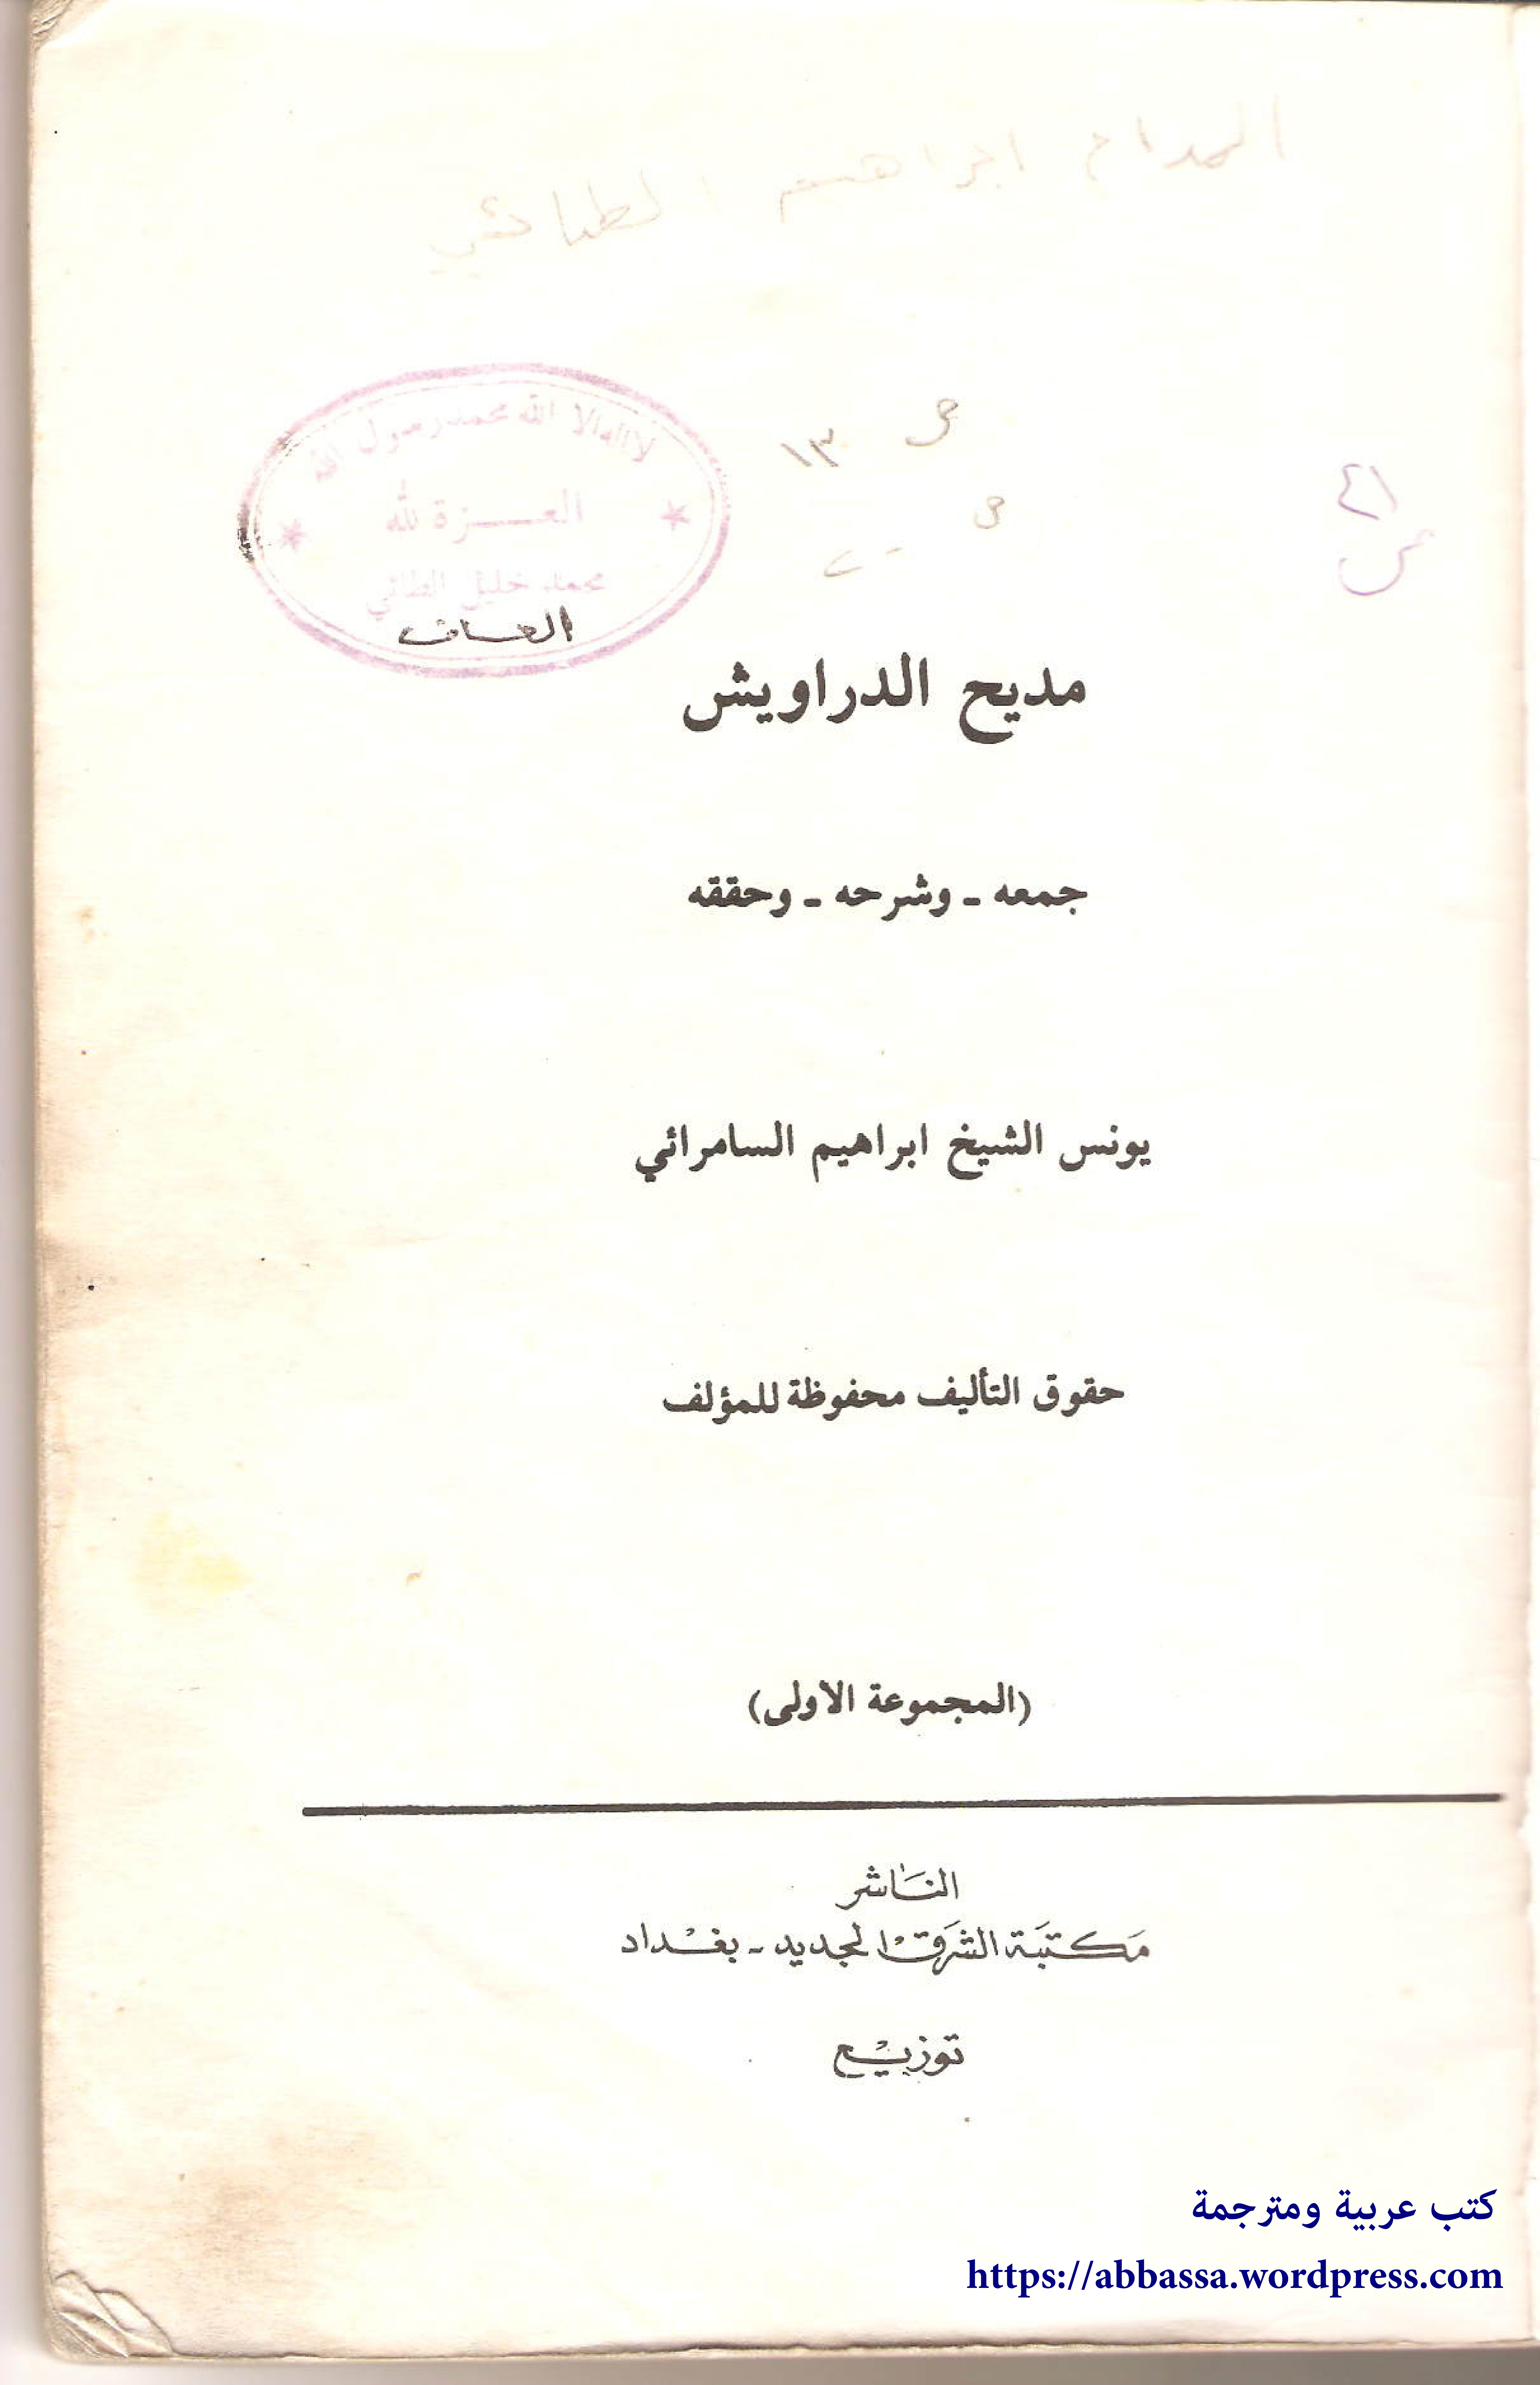 المداح ابراهيم الطائي
لااله الا الله محمد رسول الله
العـــزة لله
محمد خليل الطائي
ص ١٣
ص
٢١
ص
مديح الدراويش
جمعه - وشرحه - وحققه
يونس الشيخ ابراهيم السامرائي
حقوق التأليف محفوظة للمؤلف
(المجموعة الاولى)
الناشر
مكتبة الشرق الجديد - بغداد
توزيع
كتب عربية ومترجمة
https://abbassa.wordpress.com